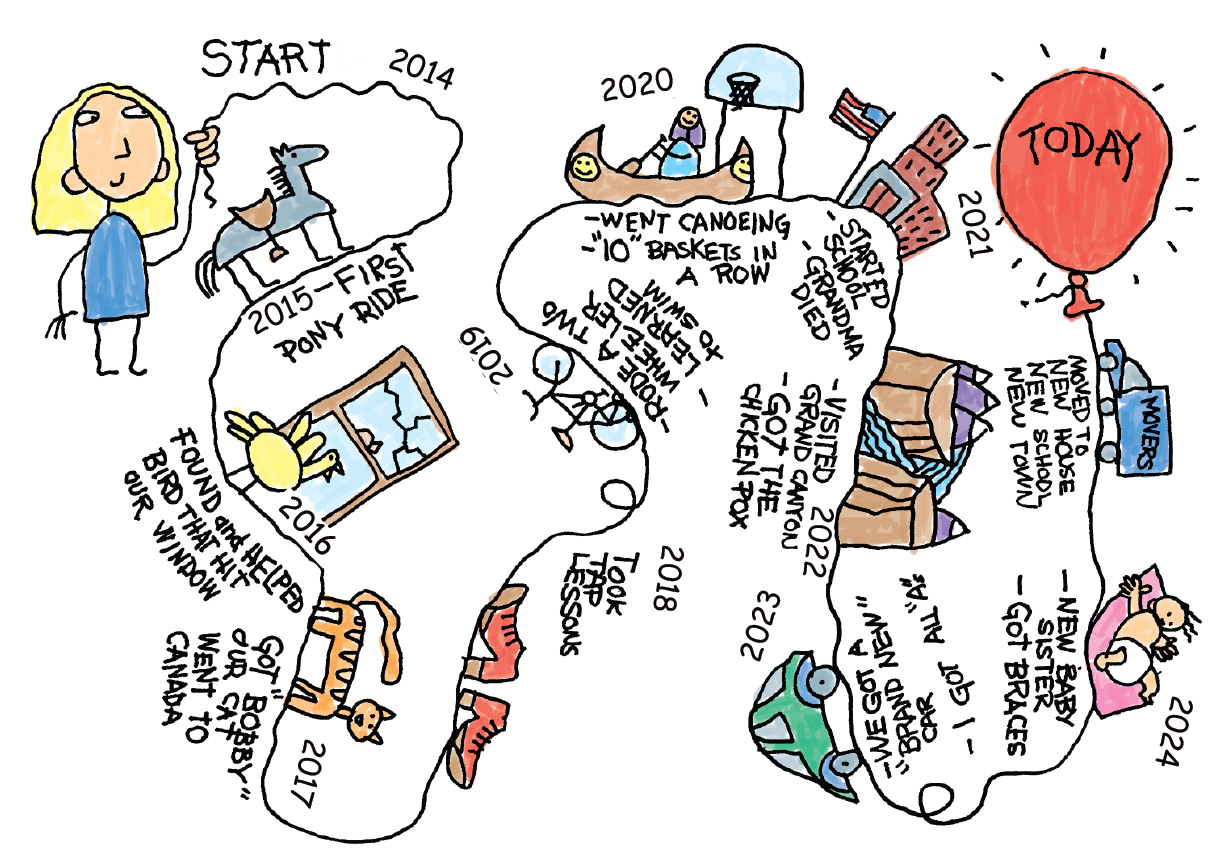 START
2014
2015-FIRST
PONY RIDE
2016
FOUND and HELPED
BIRD THAT HIT
OUR WINDOW
2017
GOT "BOBBY"
OUR CAT
WENT TO
CANADA
2018
TOOK
TAP
LESSONS
2019
-RODE A TWO
WHEELER
- LEARNED
TO SWIM
2020
-WENT CANOEING
-"10" BASKETS IN
A ROW
2021
-STARTED
SCHOOL
-GRANDMA
DIED
2022
-VISITED
GRAND CANYON
-GOT THE
CHICKEN POX
2023
-WE GOT A
"BRAND NEW"
CAR
- I GOT ALL "A"s"
2024
-NEW BABY
SISTER
- GOT BRACES
MOVED TO
NEW HOUSE
NEW SCHOOL
NEW TOWN
MOVERS
TODAY